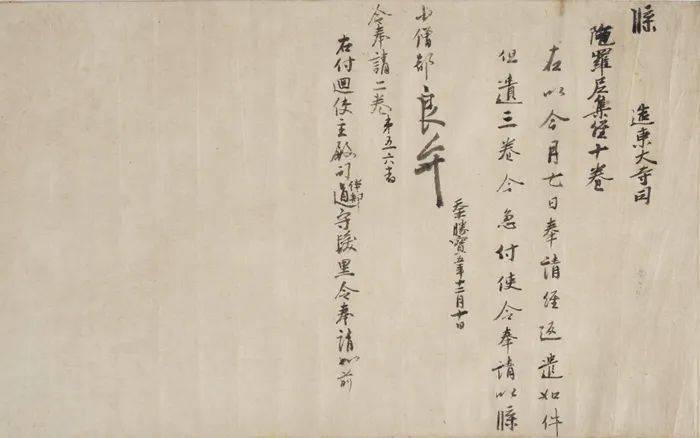 牒 造東大寺司
陀羅尼集経十巻
右以今月七日奉請経返遣如件
但遺三巻今急付使令奉請以牒
天平勝寶五年十二月十日
少僧都良弁
令奉請二巻 第五六者
右付廻使主殿司 守駿黒令奉請如前